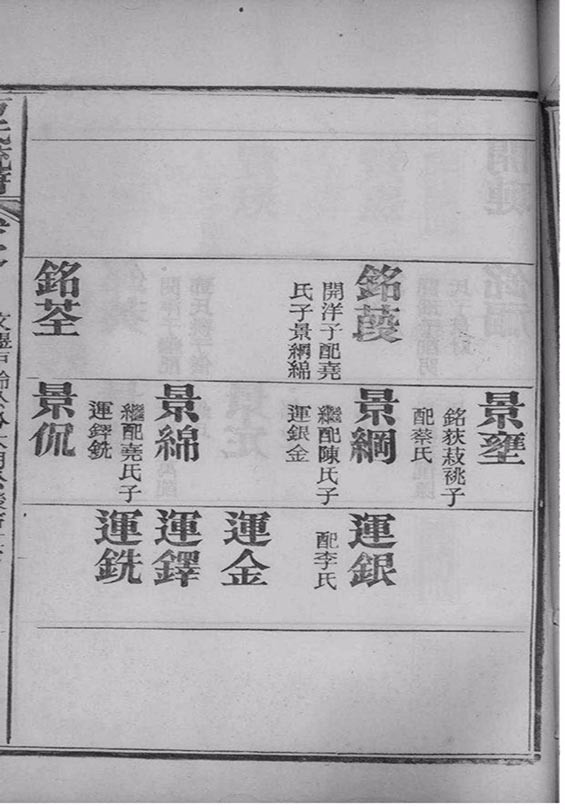 銘葭
開洋子配堯
氏子景綱綿
銘荃
景
配蔡氏
景綱
繼配陳氏子
運銀金
景綿
繼配堯氏子
運鐸銑
景侃
運銀
配李氏
運金
運鐸
運銑